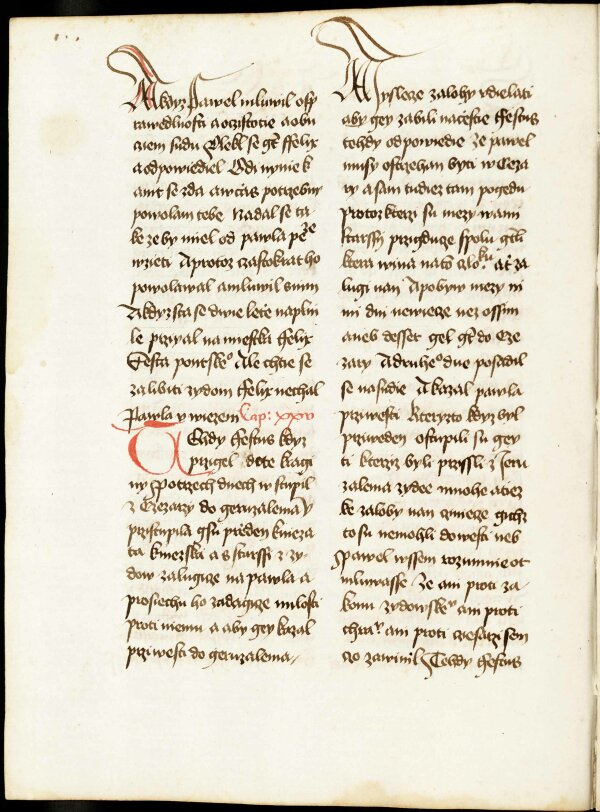 A kdyz Pawel mluwil o sp
rawedlnosti a o czistotie a o bu
cziem sudu Olekl se gt ffelix
a odpowiediel Odi nynie k
amt se zda a w czas potrzebny
powolam tebe Nadal se ta
ke ze by miel od pawla peze
wzieti A protoz czastokrat ho
powolawal a mluwil s nim
A kdyz sta se dwie letie naplni
le przyal namiestka ffelix
ffesta pontske° Ale chtie se
zalibiti zydom ffelix nechal
Pawla v wiezem Cap: xxv
Tehdy ffestus kdyz
przigel do te kragi
ny Po trzech dnech wstupil
z Czezarzy do geruzalema Y
przistupila gsu przeden knieza
ta kniezska a starssi z zy
dow zalugicze na pawla a
prosiechu ho zadagicze milosti
proti niemu a aby gey kazal
prziwesti do geruzalema
Mysleze zalohy vdielati
aby gey zabili na cestie ffestus
tehdy odpowiedie Ze pawel
musy ostrzehan byti w Ceza
rzy a sam tudiez tam pogedu
protoz kterzi su mezy wami
starssy przigduce spolu gt li
ktera wina na to czlo ku at za
lugi nan A pobyw mezy ni
mi dni newiece nez ossm
aneb desset gel gt do Cze
zarzy A druhe° dne posadil
se na sudie A kazal pawla
prziwesti Kteryzto kdyz byl
priweden ostupili su gey
ti kterziz byli przissli z Jeru
zalema zydee mnohe a tiez
ke zaloby nan czniece gichz
to su nemohli dowesti neb
Pawel wssem rozumnie ot
mluwasse Ze ani proti za
konu zydowske° ani proti
chra° ani proti czesarzi sem
czo zawinil Tehdy ffestus